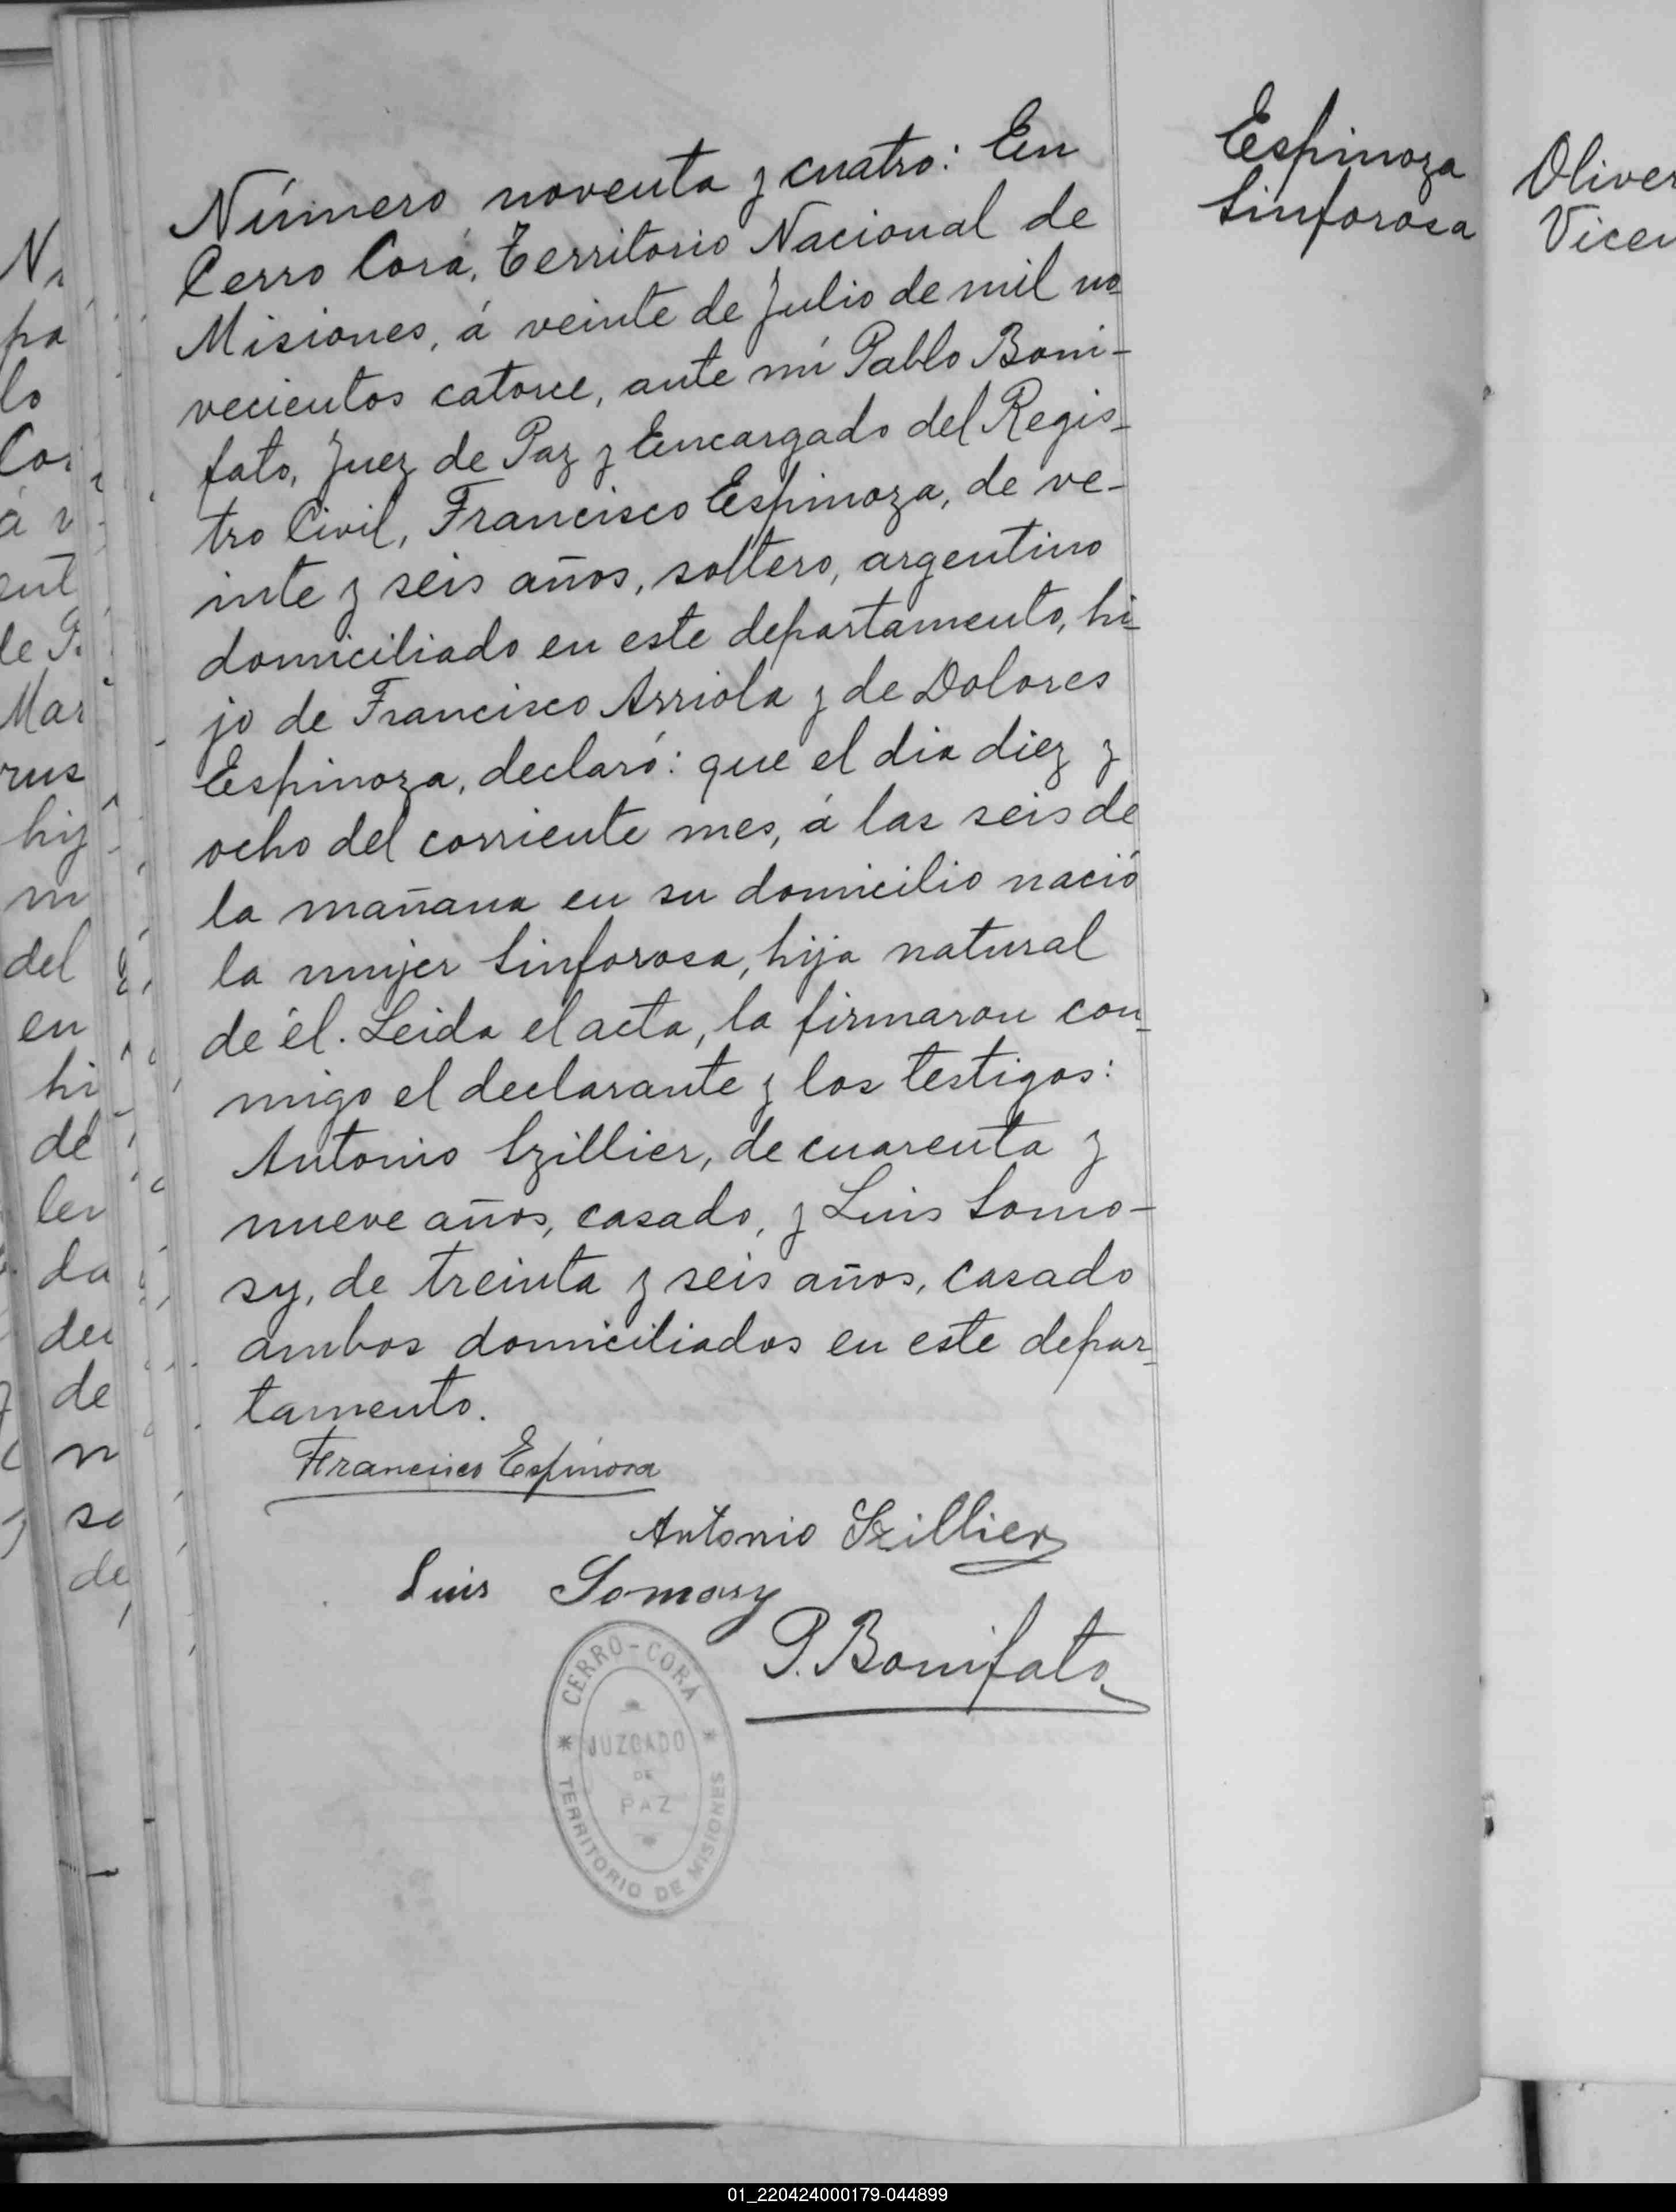 Número noventa y cuatro: En
Cerro Corá, Territorio Nacional de
Misiones, á veinte de Julio de mil no
vecientos catorce, ante mí Pablo Boni-
fato, Juez de Paz y Encargado del Regis-
tro Civil, Francisco Espinoza, de ve-
inte y seis años, soltero, argentino
domiciliado en este departamento, hi-
jo de Francisco Arriola y de Dolores
Espinoza, declaró: que el dia diez y
ocho del corriente mes, á las seis de
la mañana en su domicilio nació
la mujer Sinforosa, hija natural
de él. Leida el acta, la firmaron con-
migo el declarante y los testigos:
Antonio Szillier, de cuarenta y
nueve años, casado, y Luis Somo-
sy, de treinta y seis años, casado
ambos domiciliados en este depar-
tamento.
Francisco Espinosa
Antonio Szillier
Luis Somosy
P. Bonifato
CERRO-CORÁ
JUZGADO
DE
PAZ
TERRITORIO DE MISIONES
Espinoza
Sinforosa
01_220424000179-044899